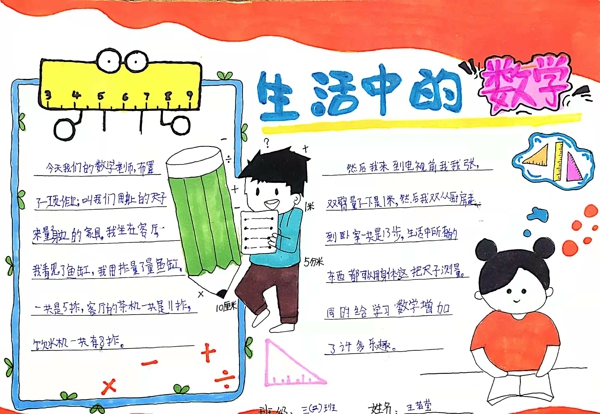 生活中的数学
3 4 5 6 7 8 9
今天我们的数学老师,布置
了一项作业:叫我们用身上的尺子
来量身边的家具,我坐在客厅
我看见了鱼缸,我用拃量了量鱼缸,
一共是5拃,客厅的茶机一共是11拃,
饮水机一共有3拃。
1米
5分米
10厘米
然后我来到电视前我我张,
双臂量了下是1米,然后我又从厨房走
到卧室一共是13步,生活中所有的
东西都可以用身体这把尺子测量。
同时给学习数学增加
了许多乐趣。
班级: 三(五)班 姓名: